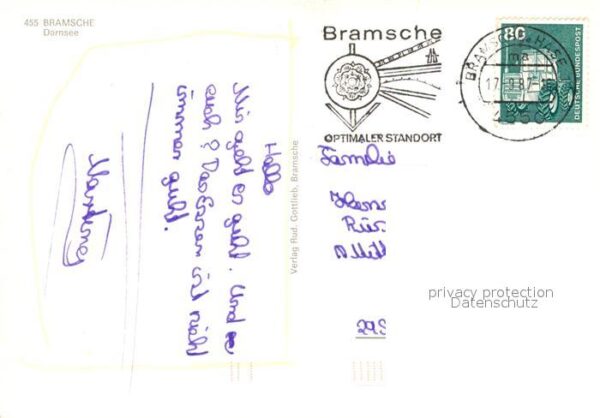 455 BRAMSCHE
Darnsee
Hallo
Mir geht es gut. Und
euch? Das Essen ist nicht
immer gut.
Verlag Rud. Gottlieb, Bramsche
Bramsche
OPTIMALER STANDORT
BRAMSCHE
80
DEUTSCHE BUNDESPOST
Familie
Hans
Rür
privacy protection
Datenschutz